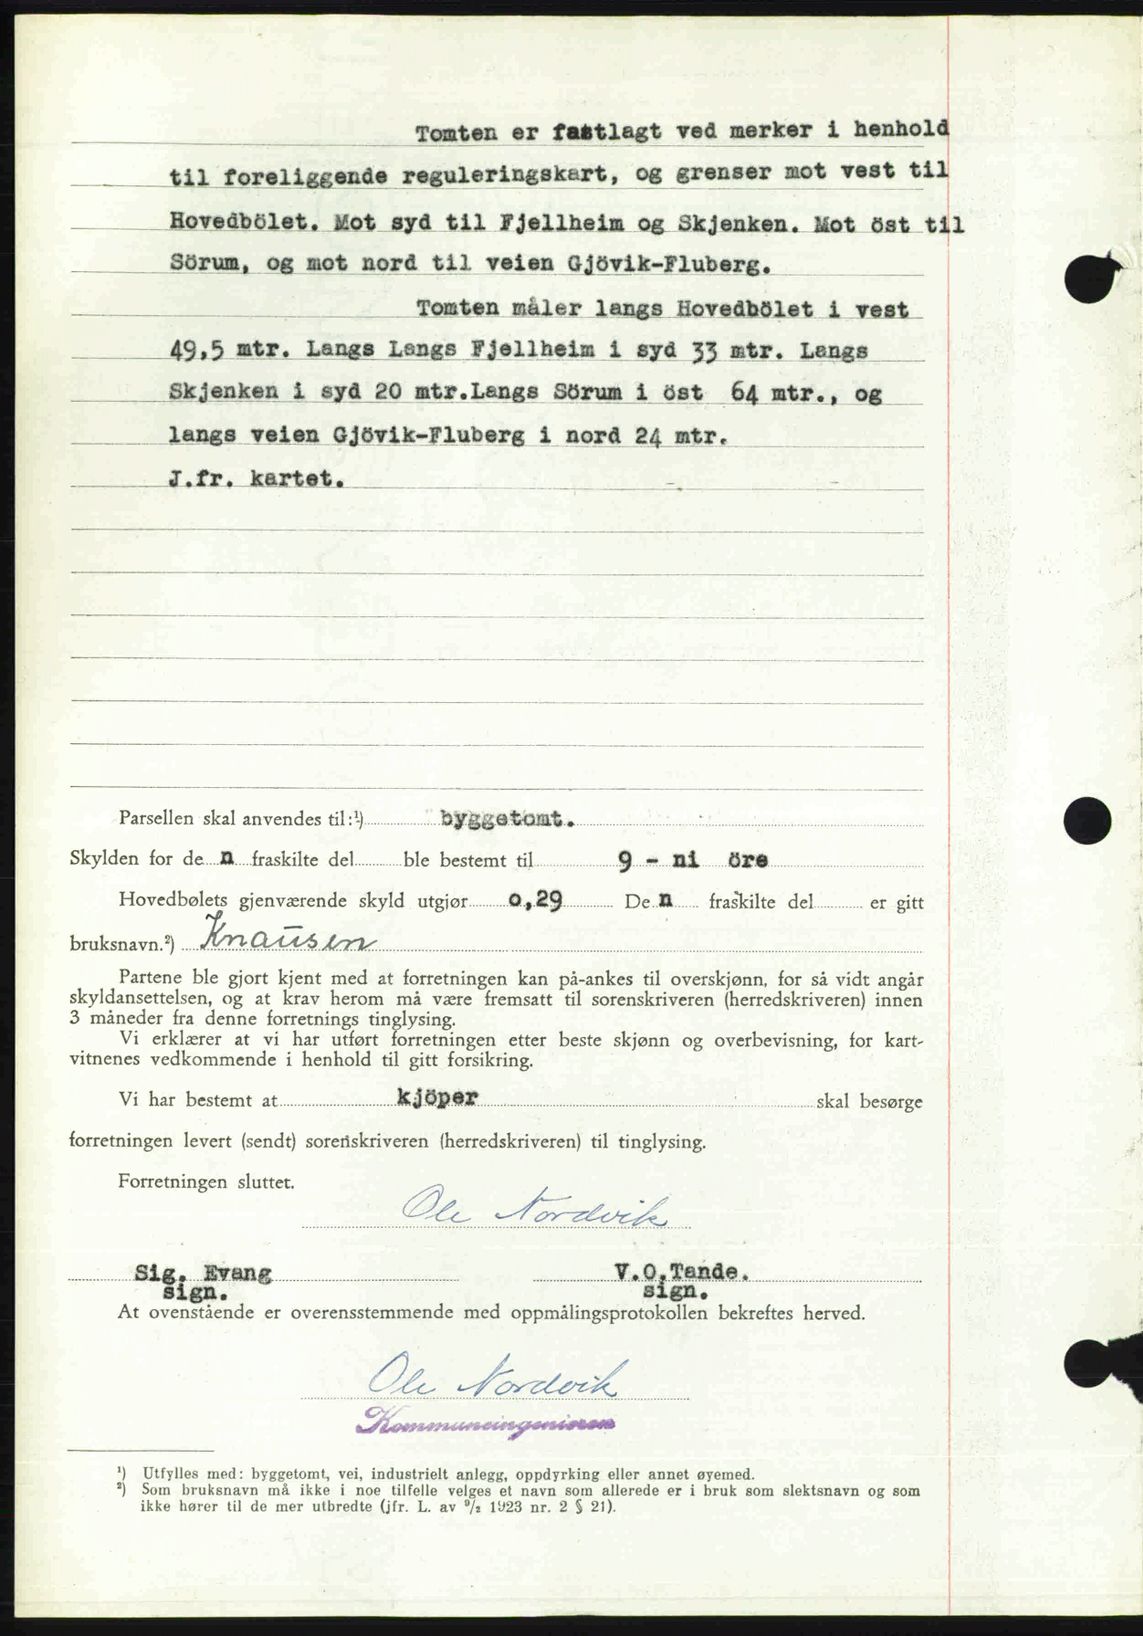 Tomten er fastlagt ved merker i henhold
til foreliggende reguleringskart, og grenser mot vest til
Hovedbölet. Mot syd til Fjellheim og Skjenken. Mot öst til
Sörum, og mot nord til veien Gjövik-Fluberg.
Tomten måler langs Hovedbölet i vest
49,5 mtr. Langs Langs Fjellheim i syd 33 mtr. Langs
Skjenken i syd 20 mtr.Langs Sörum i öst 64 mtr., og
langs veien Gjövik-Fluberg i nord 24 mtr.
J.fr. kartet.
Parsellen skal anvendes til:¹) byggetomt.
Skylden for de n fraskilte del ble bestemt til 9 - ni öre
Hovedbølets gjenværende skyld utgjør 0,29 De n fraskilte del er gitt
bruksnavn.²) Knausen
Partene ble gjort kjent med at forretningen kan på-ankes til overskjønn, for så vidt angår
skyldansettelsen, og at krav herom må være fremsatt til sorenskriveren (herredskriveren) innen
3 måneder fra denne forretnings tinglysing.
Vi erklærer at vi har utført forretningen etter beste skjønn og overbevisning, for kart-
vitnenes vedkommende i henhold til gitt forsikring.
Vi har bestemt at kjöper skal besørge
forretningen levert (sendt) sorenskriveren (herredskriveren) til tinglysing.
Forretningen sluttet.
Ole Nordvik
Sig. Evang V.O.Tande.
sign. sign.
At ovenstående er overensstemmende med oppmålingsprotokollen bekreftes herved.
Ole Nordvik
Kommuneingeniøren
¹) Utfylles med: byggetomt, vei, industrielt anlegg, oppdyrking eller annet øyemed.
²) Som bruksnavn må ikke i noe tilfelle velges et navn som allerede er i bruk som slektsnavn og som
ikke hører til de mer utbredte (jfr. L. av ⁹/₂ 1923 nr. 2 § 21).